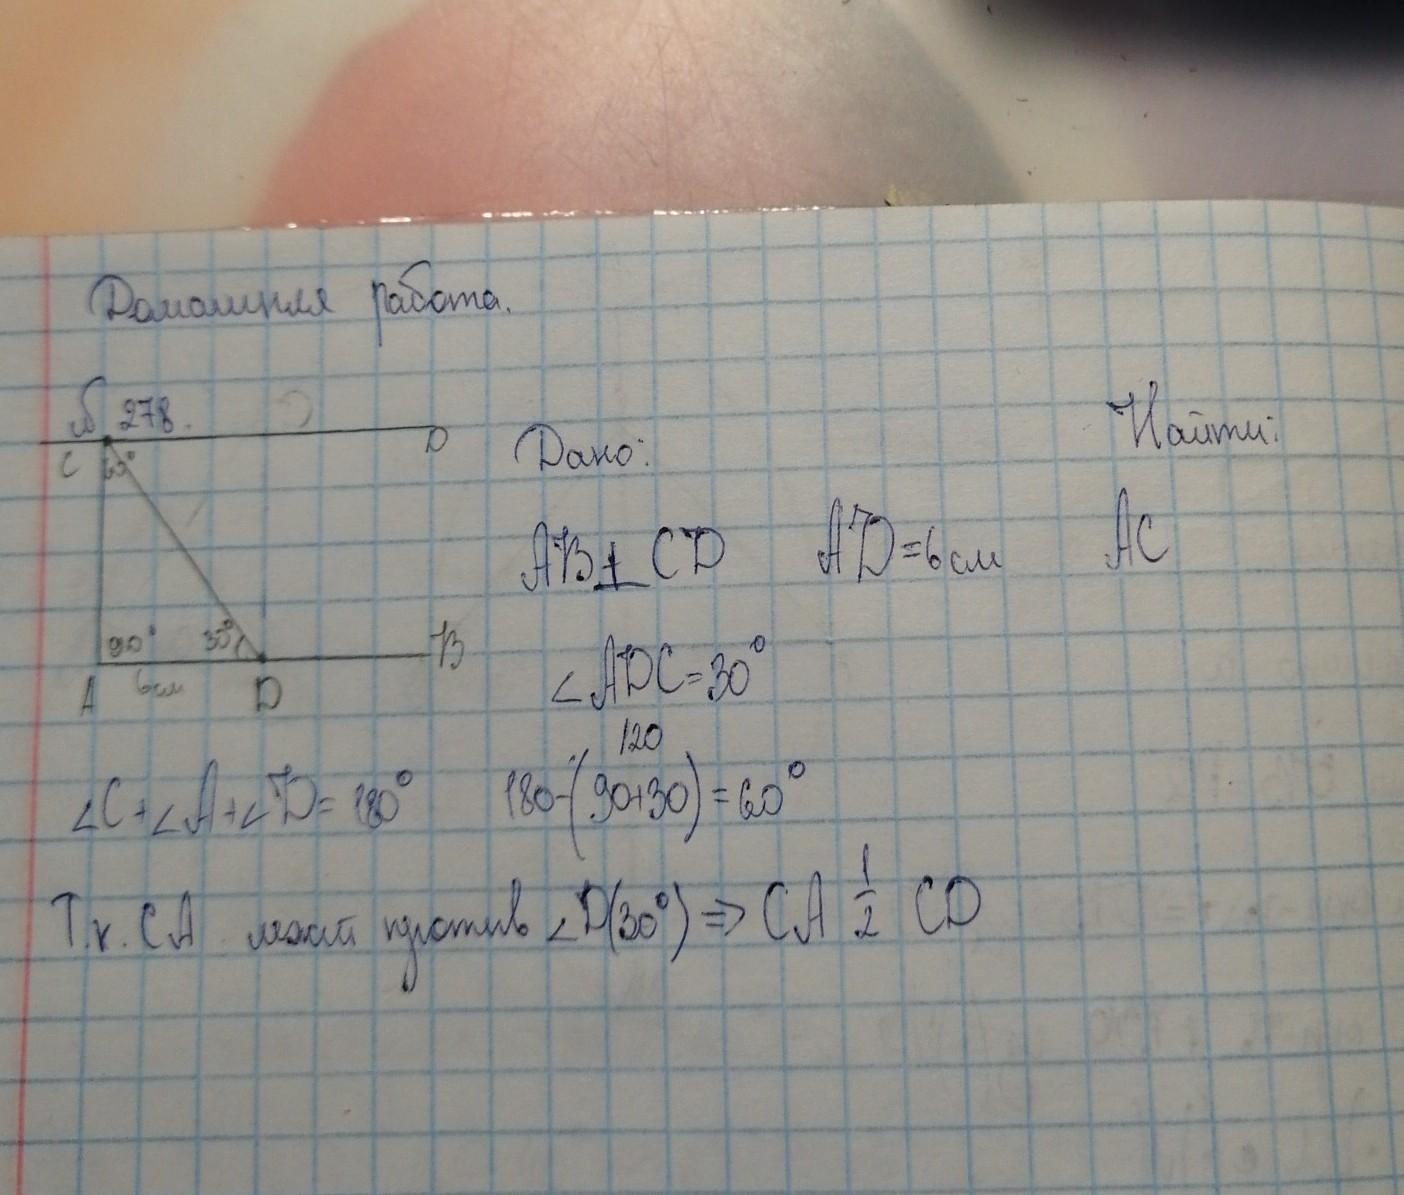 Домашняя работа.
№ 278.
Дано:
Найти:
C 60° D
AB ⊥ CD
AD = 6 см
AC
90° 30° B
A 6 см D
∠ADC = 30°
120
∠C + ∠A + ∠D = 180°
180 - (90 + 30) = 60°
Т.к. CA лежит против ∠D(30°) ⇒ CA 1/2 CD